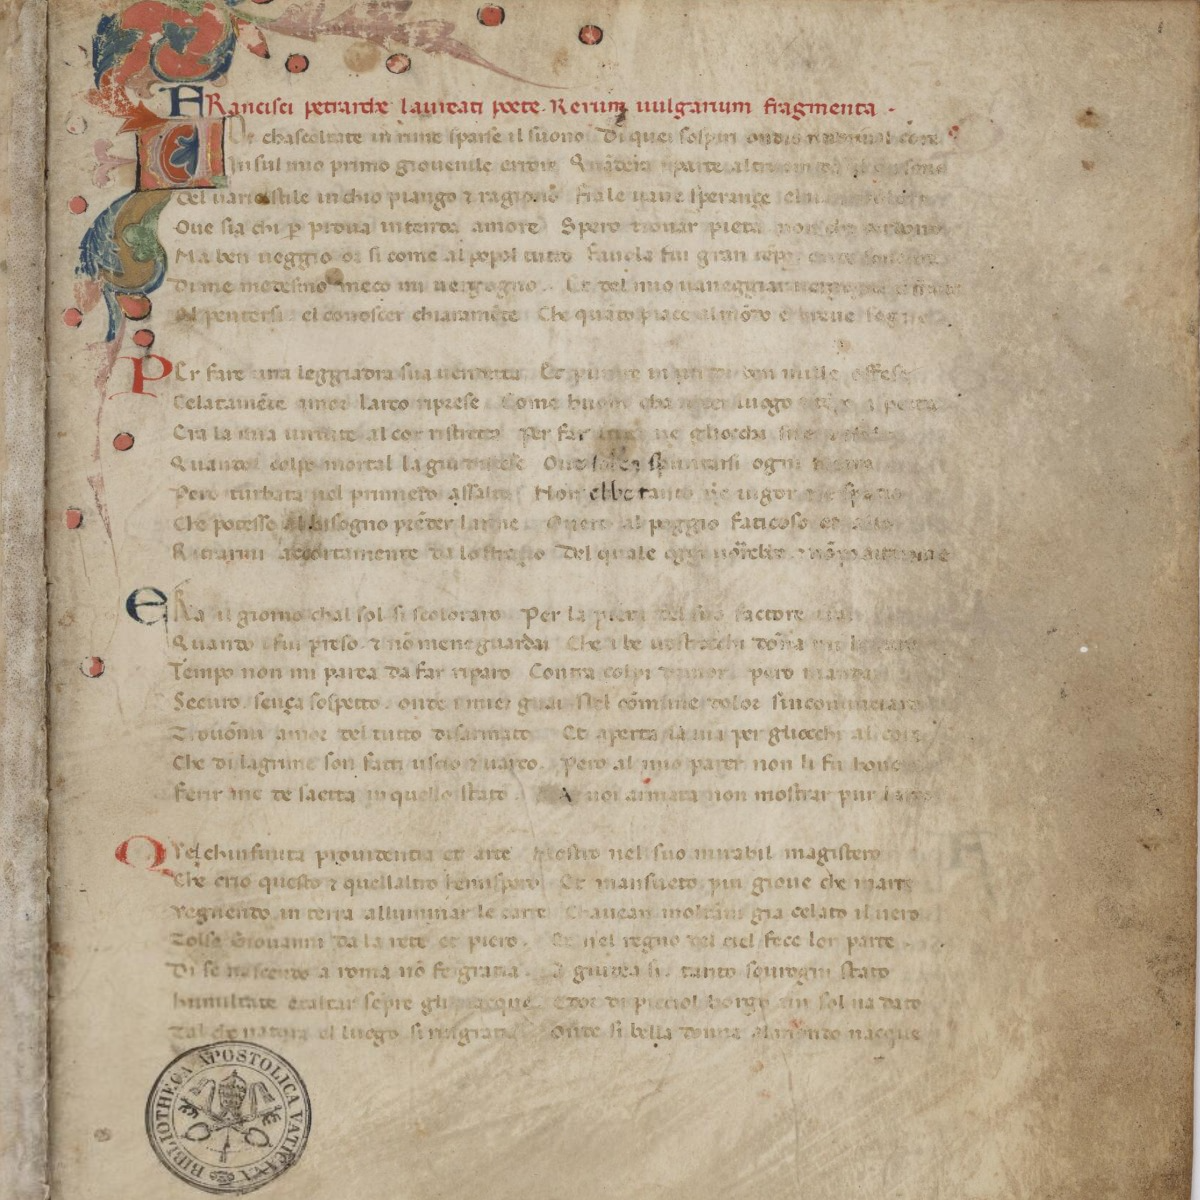 FRancisci petrarche laureati poete. Rerum uulgarium fragmenta.
chascoltate in rime sparse il suono Di quei sospiri ondio nudriual core
In sul mio primo giouenile errore parte altruom da
Del uario stile in chio piango ⁊ ragiono Fra le uane speranze
Oue sia chi ꝑ proua intenda amore Spero trouar pieta non che perdono
Ma ben ueggio or si come al popol tutto Fauola fui gran
Di me medesmo meco mi uergogno. Et del mio uaneggiar uergogna
El pentersi el conoscer chiaramẽte Che quãto piace al mõdo e breue sogno
PEr fare una leggiadra sua uendetta Et punire in un di ben mille offese
Celatamẽte amor larco riprese Come huom cha nocer luogo
Era la mia uirtute al cor ristretta Per far iui ne gliocchi
Quandol colpo mortal la giu discese Oue solea spuntarsi ogni
Pero turbata nel primiero assalto Non ebbe tanto ne uigor ne spatio
Che potesse al bisogno prẽder larme Ouero al poggio faticoso et alto
Ritrarmi accortamente da lo stratio Del quale oggi uorrebbe
ERa il giorno chal sol si scoloraro Per la pieta del suo factore
Quando i fui preso ⁊ nõ mene guardai Che i be uostrocchi dõna
Tempo non mi parea da far riparo Contra colpi damor pero
Securo senza sospetto. onde i miei guai Nel cõmune dolor sincominciaro
Trouõmi amor del tutto disarmato Et aperta la uia per gliocchi al core
Che di lagrime son fatti uscio ⁊ uarco. Pero al mio parer non li fu honore
Ferir me de saetta in quello stato. A uoi armata non mostrar pur larco
QVel chinfinita prouidentia et arte Mostro nel suo mirabil magistero
Che crio questo ⁊ quellaltro hemispero Et mansueto piu gioue che marte
Vegnendo in terra alluminar le carte Chauean moltãni gia celato il uero
Tolse Giouanni da la rete et piero. Et nel regno del ciel fece lor parte.
Di se nascendo a roma nõ fe gratia. A giudea si. tanto sourogni stato
humiltate exaltar sẽpre gli piacque Edor di picciol borgo un sol na dato
Tal che natura el luogo si ringratia Onde si bella donna al mondo nacque
BIBLIOTHECA APOSTOLICA VATICANA